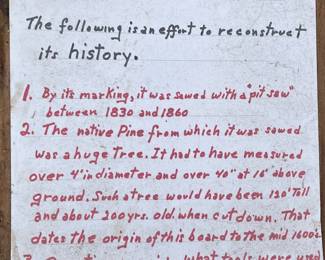 The following is an effort to reconstruct
its history.
1. By its marking, it was sawed with a "pit saw"
between 1830 and 1860
2. The native Pine from which it was sawed
was a huge Tree. It had to have measured
over 4" in diameter and over 40" at 16' above
ground. Such a tree would have been 120' Tall
and about 200 yrs. old. when cut down. That
dates the origin of this board to the mid 1600's.
what tools were used